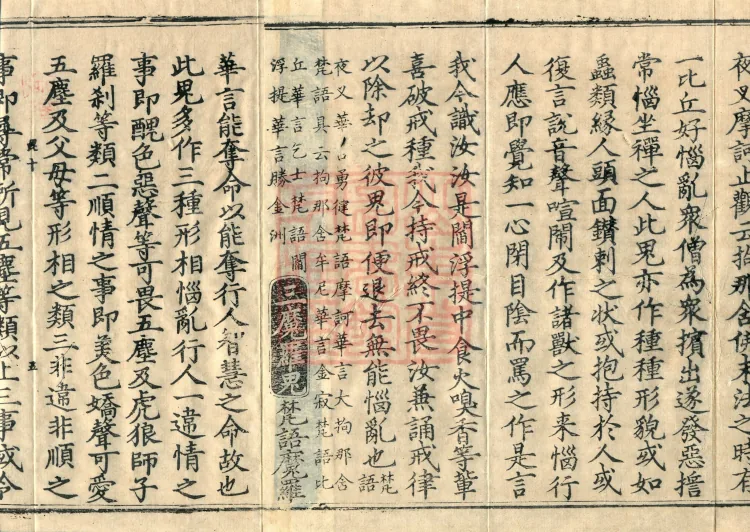 夜叉摩訶止觀云拘那含佛末法之時有
一比丘好惱亂眾僧為眾擯出遂發惡擔
常惱坐禪之人此鬼亦作種種形貌或如
蟲類緣人頭面鑚刺之狀或抱持於人或
復言說音聲喧鬧及作諸獸之形来惱行
人應即覺知一心閉目陰而罵之作是言
我今識汝汝是閻浮提中食火嗅香等輩
喜破戒種我今持戒終不畏汝兼誦戒律
以除却之彼鬼即便退去無能惱亂也梵語
夜叉華言勇健梵語摩訶華言大拘那含
梵語具云拘那舍牟尼華言金寂梵語比
丘華言乞士梵語閻
浮提華言勝金洲
三魔羅鬼梵語魔羅
華言能奪命以能奪行人智慧之命故也
此鬼多作三種形相惱亂行人一違情之
事即醜色惡聲等可畏五塵及虎狼師子
羅剎等類二順情之事即美色嬌聲可愛
五塵及父母等形相之類三非違非順之
事即尋常所見五塵等類以上三事或令
五